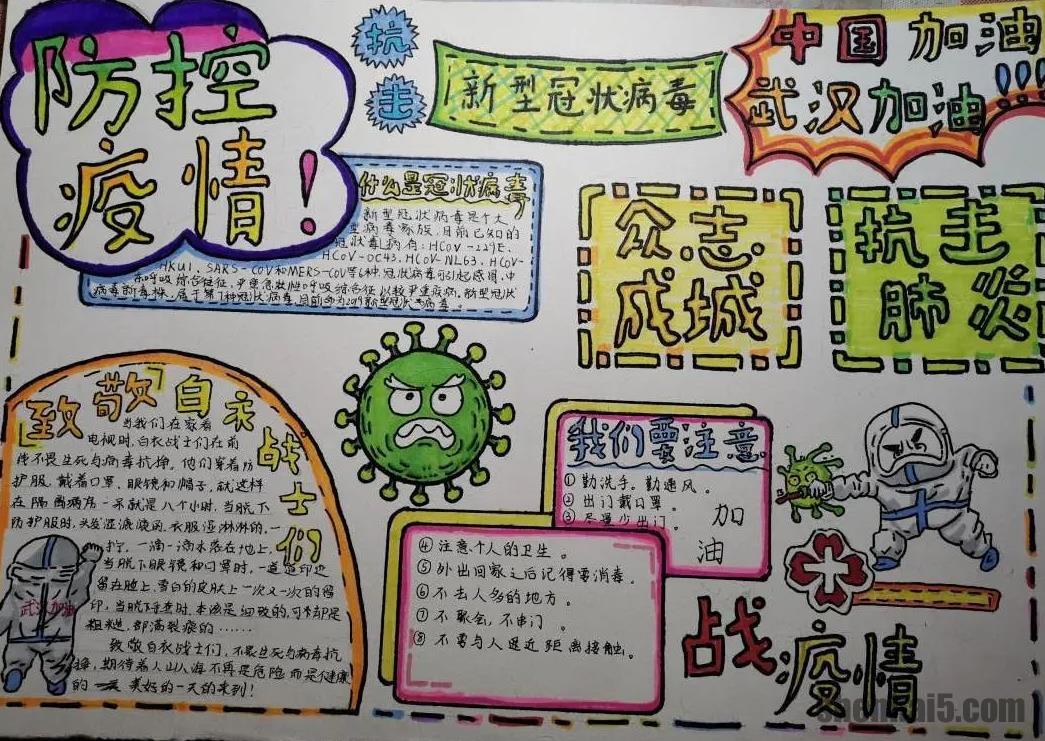 防控
疫情!
抗
击
新型冠状病毒!
中国加油
武汉加油!!!
什么是冠状病毒
新型冠状病毒是个大
型病毒家族,目前已知的
冠状毒病有:HCoV-229E.
HCoV-OC43.HCoV-NL63.HCoV-
HKU1、SARS-COV和MERS-COV等6种,冠状病毒可引起感冒、中
病毒新毒株,属于第7种冠状病毒,目前命为2019新型冠状病毒。
众志
成城
抗击
肺炎
致敬白衣战士们
当我们在家看
电视时,白衣战士们在前
线不畏生死与病毒抗挣。他们穿着防
护服、戴着口罩、眼镜和帽子,就这样
在隔离病房一呆就是八个小时,当脱下
防护服时,头发湿漉漉的,衣服湿淋淋的,一
拧,一滴一滴水落在地上,
当脱下眼镜和口罩时,一道道印迹
留在脸上,雪白的皮肤上一次又一次的得
印,当脱下手套时,本该是细致的,可手却是
粗糙,部满裂痕的……
致敬白衣战士们,不畏生死与病毒抗
挣,期待着人山人海不再是危险而是健康
的 美好的一天的来到!
武汉加油
我们要注意
①勤洗手。勤通风。
②出门戴口罩。
③尽量少出门。
加
油
④注意个人的卫生。
⑤外出回家之后记得要消毒。
⑥不去人多的地方。
⑦不聚会,不串门。
⑧不要与人过近距离接触。
战疫情
shenhai5.com